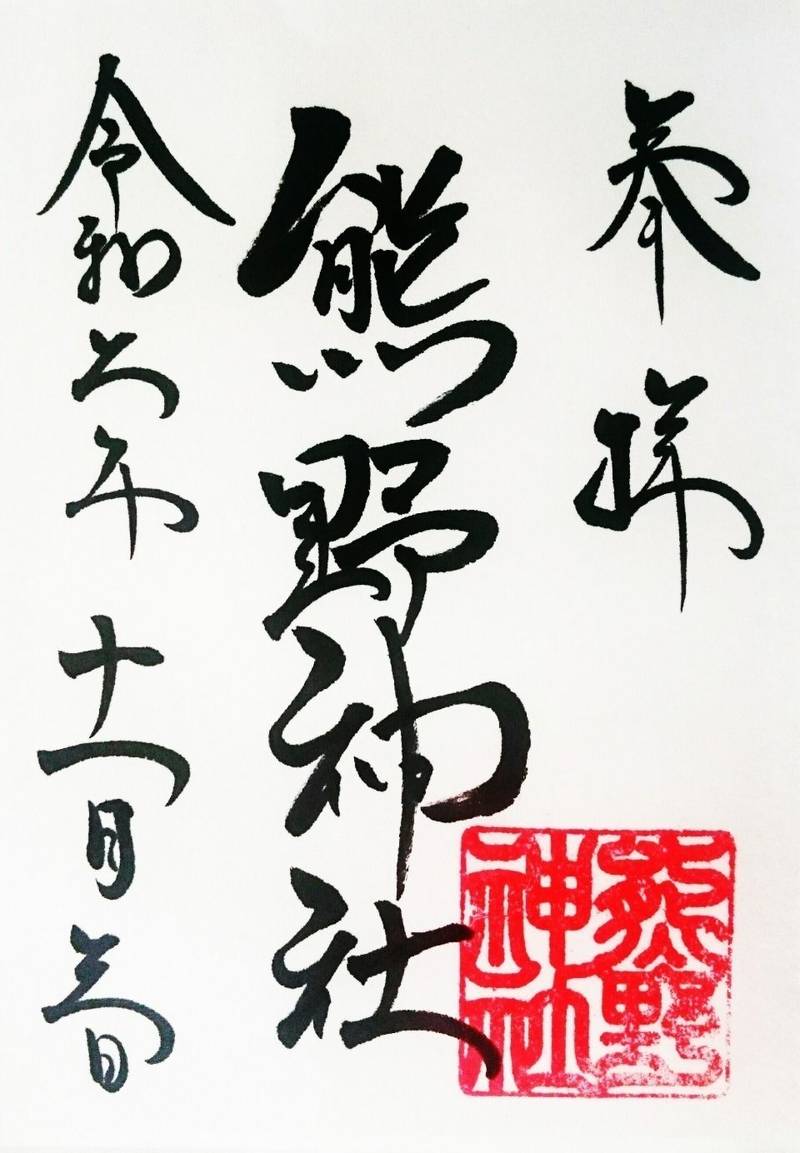 奉拝
熊野神社
令和六年十一月三日
熊野
神社